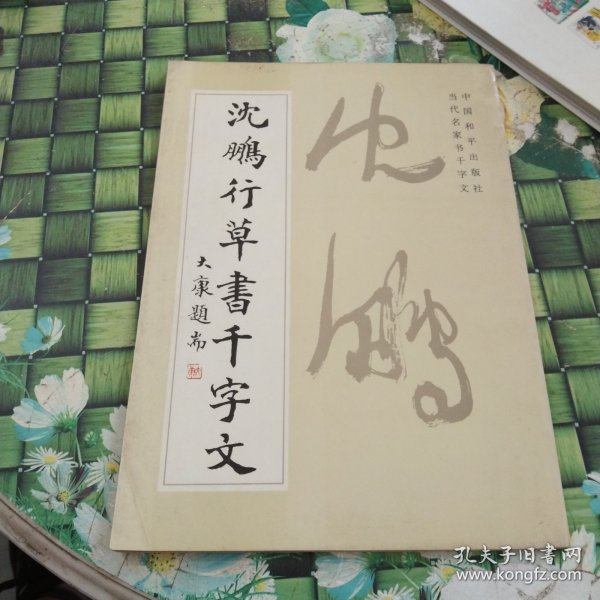 当代名家书千字文
中国和平出版社
沈鹏
沈鵬行草書千字文
大康題耑
孔夫子旧书网
www.kongfz.com